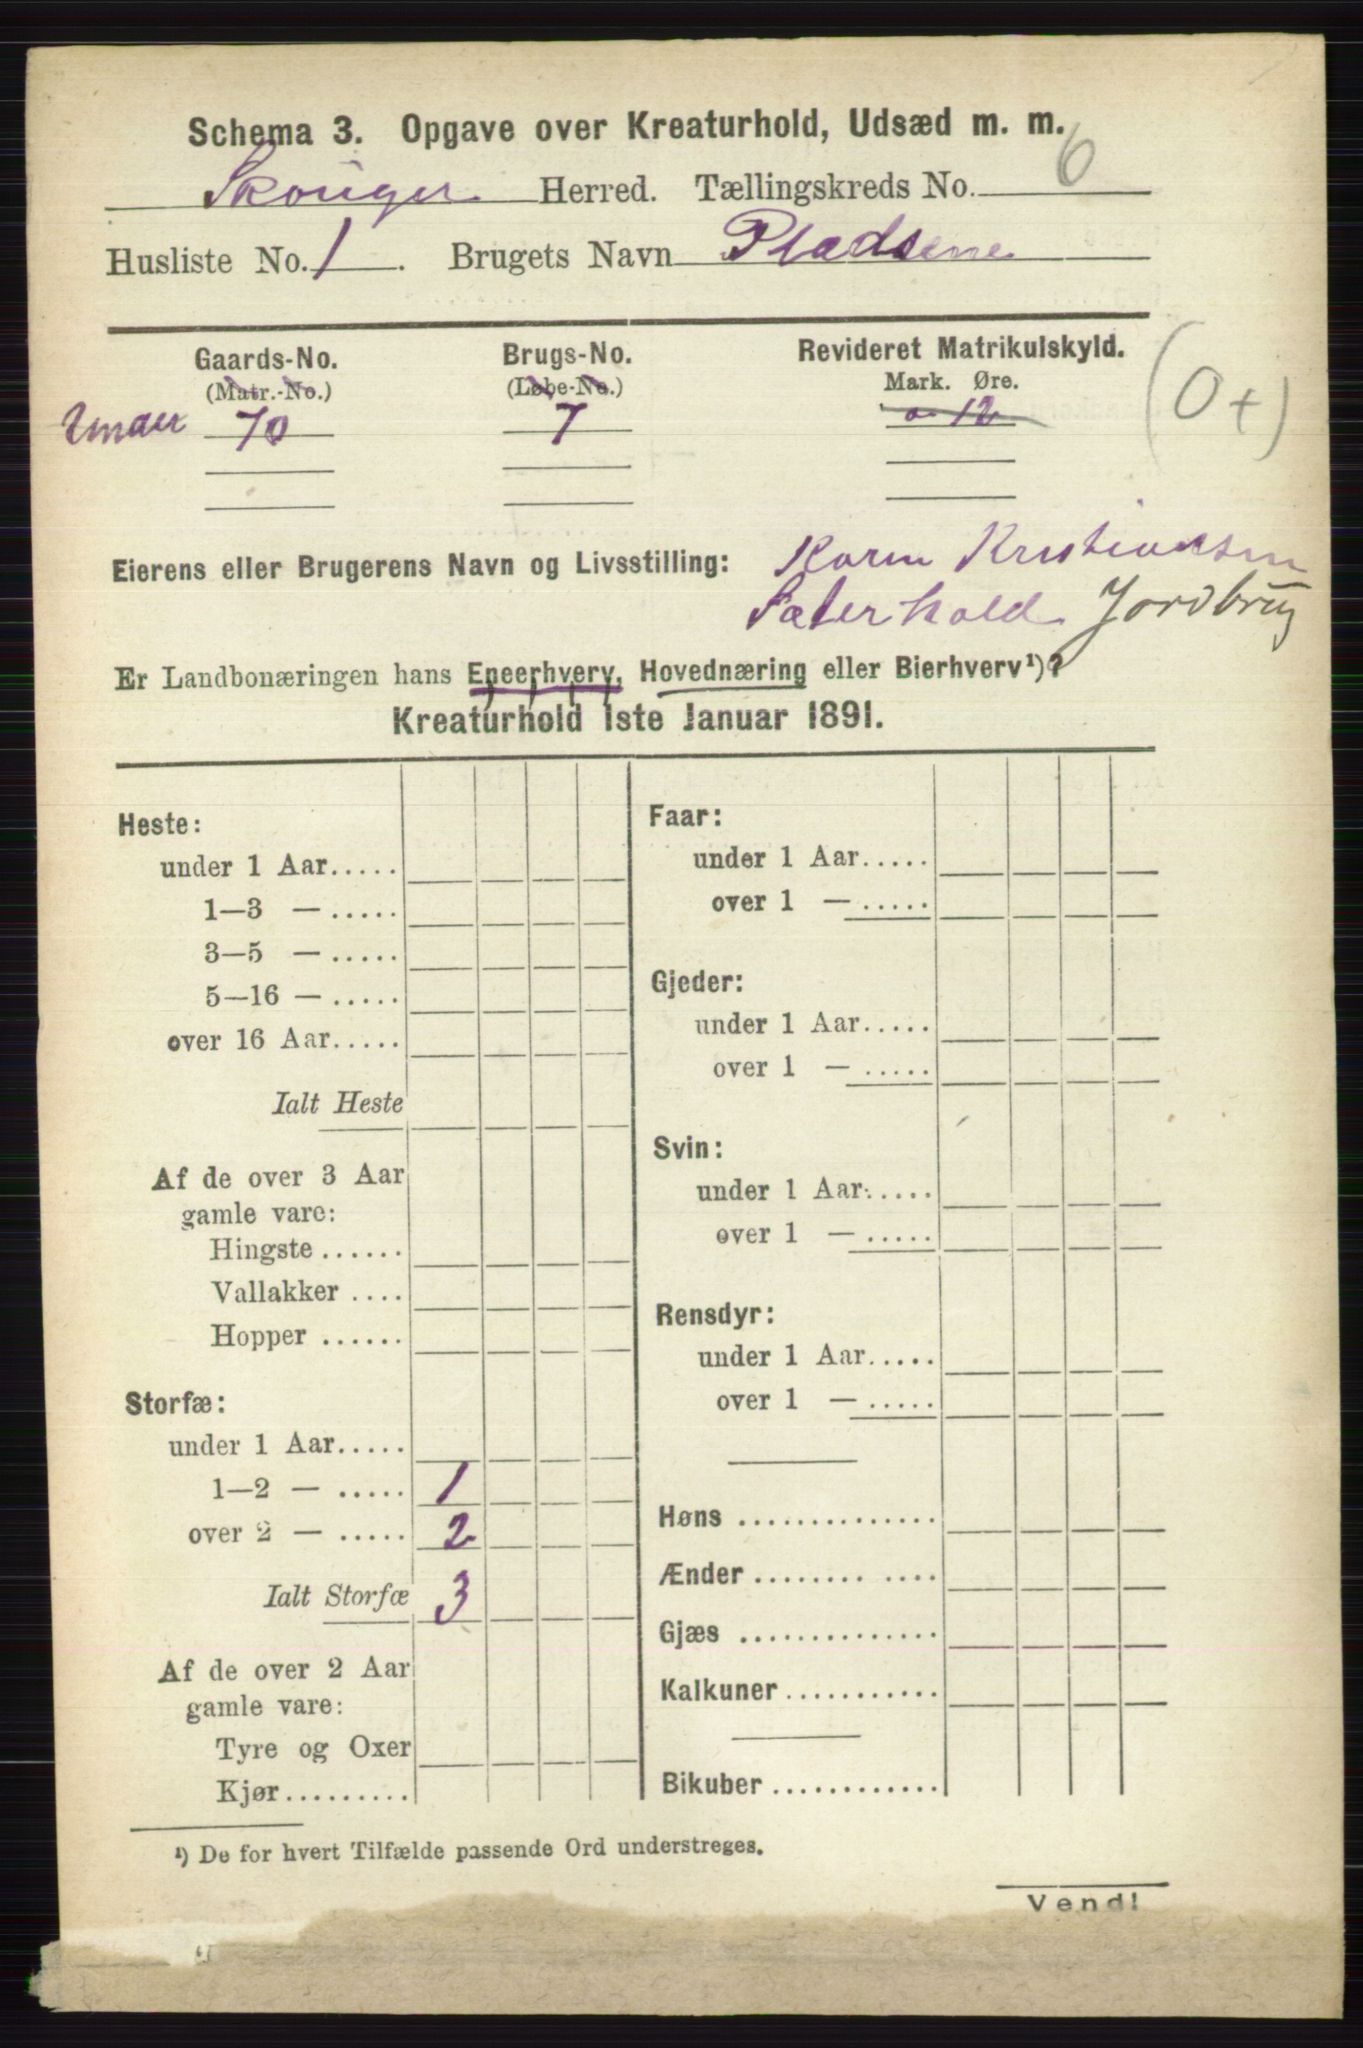 Schema 3. Opgave over Kreaturhold, Udsæd m. m.
Skouger Herred. Tællingskreds No. 6
Husliste No. 1. Brugets Navn Pladsene
Gaards-No. Brugs-No. Revideret Matrikulskyld.
(Matr.-No.) (Løbe-No.) Mark. Øre.
Under 70 7 0 12 (0+)
Eierens eller Brugerens Navn og Livsstilling: Karen Kristiansen
Jordbrug
Er Landbonæringen hans Eneerhverv, Hovednæring eller Bierhverv¹)?
Kreaturhold 1ste Januar 1891.
Heste:
under 1 Aar.....
1—3 — .....
3—5 — .....
5—16 — .....
over 16 Aar.....
Ialt Heste
Af de over 3 Aar
gamle vare:
Hingste ......
Vallakker ....
Hopper ......
Storfæ:
under 1 Aar.....
1—2 — ..... 1
over 2 — ..... 2
Ialt Storfæ 3
Af de over 2 Aar
gamle vare:
Tyre og Oxer
Kjør.........
Faar:
under 1 Aar.....
over 1 — .....
Gjeder:
under 1 Aar.....
over 1 — .....
Svin:
under 1 Aar.....
over 1 — .....
Rensdyr:
under 1 Aar.....
over 1 — .....
Høns ..............
Ænder ........ ....
Gjæs ..............
Kalkuner ...........
Bikuber ............
¹) De for hvert Tilfælde passende Ord understreges.
Vend!